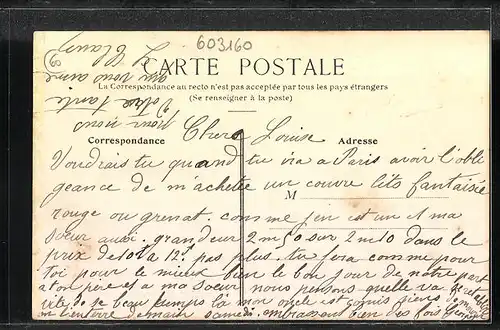 603160
CARTE POSTALE
La Correspondance au recto n'est pas acceptée par tous les pays étrangers
(Se renseigner à la poste)
Correspondance
Adresse
M
Chere Louise
Voudrais tu quand tu ira a Paris avoir l'obli
geance de m'achetée un couvre lits fantaisie
rouge ou grenat. comme j'en est un et ma
sœur aussi. grandeur 2m50 sur 2m10 dans le
prix de 10f a 12f pas plus. tu fera comme pour
toi pour le mieux bien le bon jour de notre part
a ton père et a ma sœur nous pensons quelle va
vite de se beau temps la mon oncle est
demain samedi. ambrasson bien des fois
pour nous
votre tante
qui vous aime